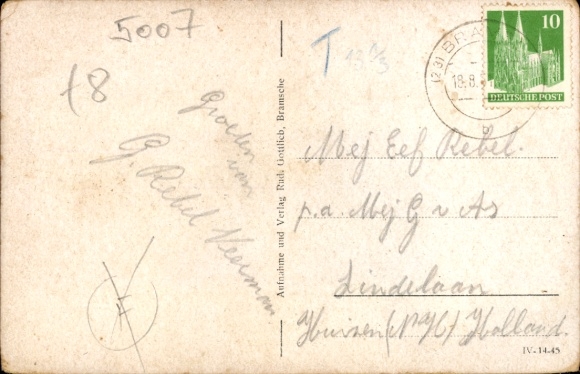 5007
+8
Groeten
van
G. Rebel Veerman
Aufnahme und Verlag Rud. Gottlieb, Bramsche
T
(23) BRA
18.8.
10
DEUTSCHE POST
Mej Eef Rebel.
p.a Mej G v As
Lindelaan
Huizen (N.H.) Holland.
IV-14-45